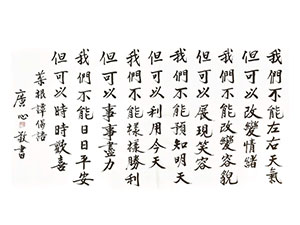 我們不能左右天氣
但可以改變情緒
我們不能改變容貌
但可以展現笑容
我們不能預知明天
但可以利用今天
我們不能樣樣勝利
但可以事事盡力
我們不能日日平安
但可以時時歡喜
葉根譚佛語
廣心敬書